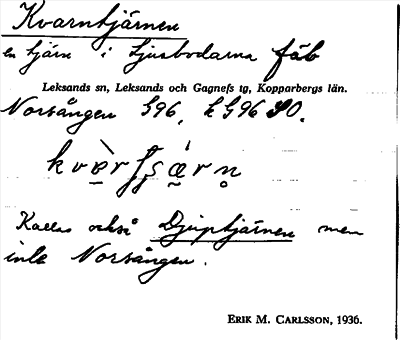 Kvarntjärnen
en tjärn i Ljusbodarna fäb
Leksands sn, Leksands och Gagnefs tg, Kopparbergs län.
Norsången G96, LG96 SO.
Kallas också Djuptjärnen men
inte Norsången.
ERIK M. CARLSSON, 1936.